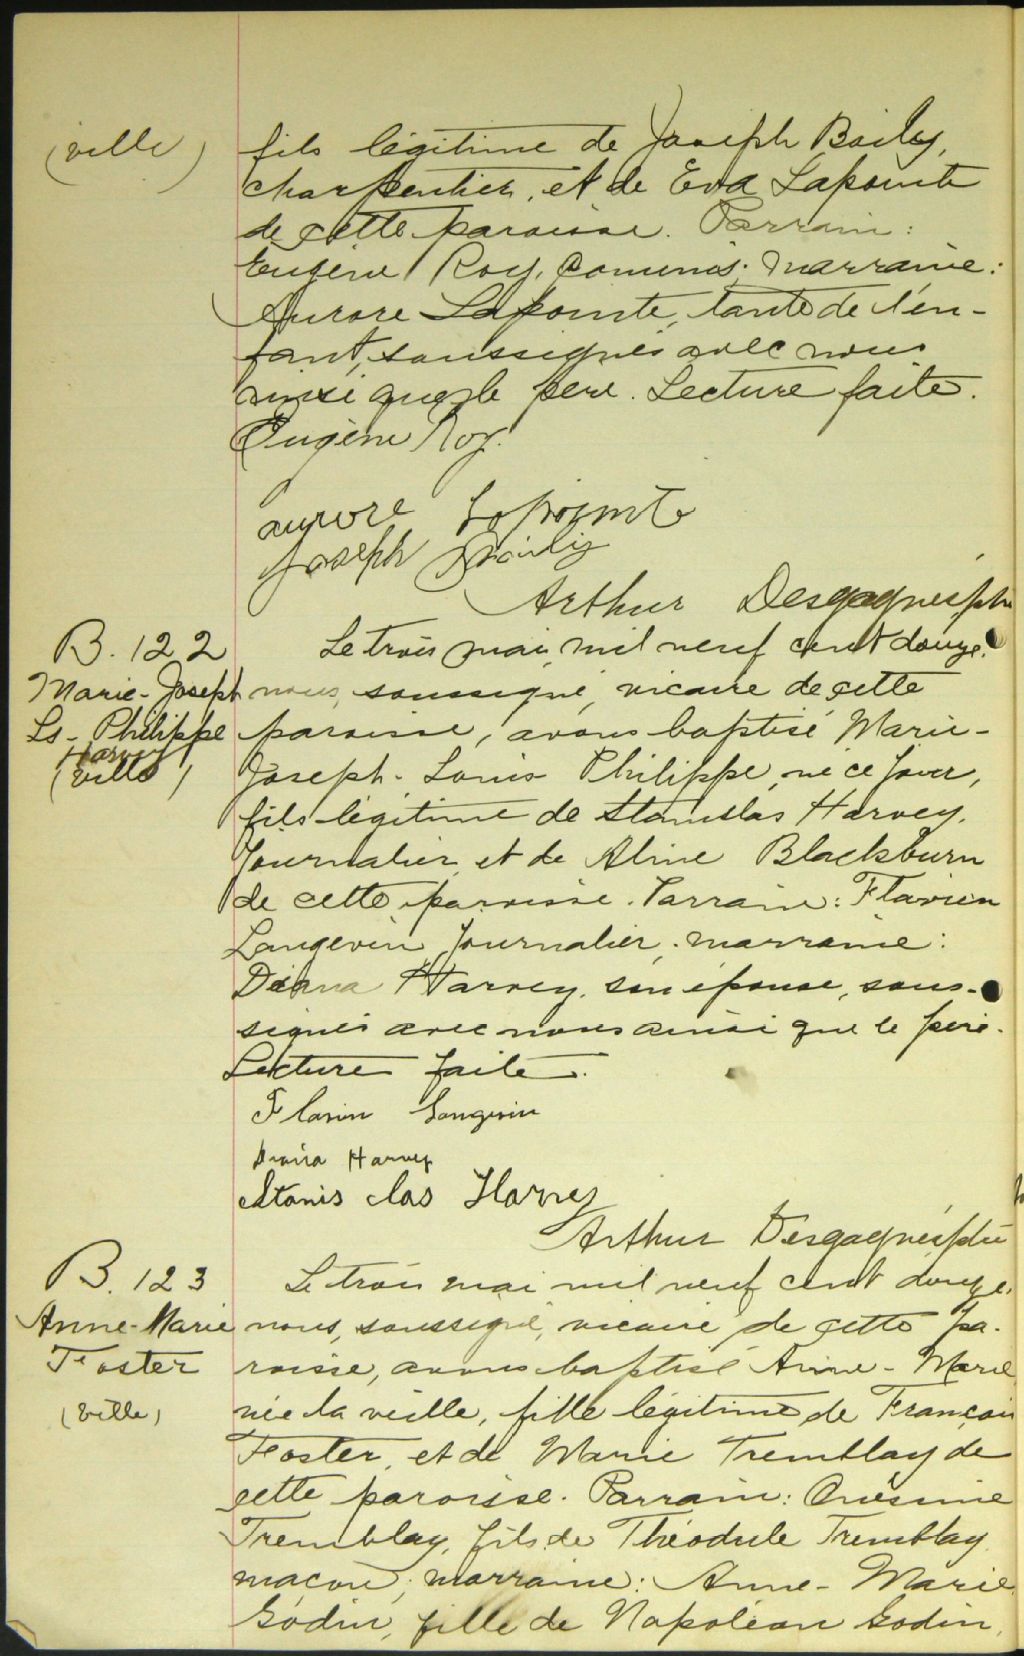 (ville)
fils légitime de Joseph Baily,
charpentier, et de Eva Lapointe
de cette paroisse. Parrain:
Eugène Roy, commis; marraine:
Aurore Lapointe, tante de l'en-
fant, soussignés avec nous
ainsi que le père. Lecture faite.
Eugène Roy.
aurore Lapointe
Joseph Baily
Arthur Desgagnés, ptre
B. 122
Marie-Joseph
Ls-Philippe
Harvey
(ville)
Le trois mai, mil neuf cent douze,
nous, soussigné, vicaire de cette
paroisse, avons baptisé Marie-
Joseph-Louis Philippe, né ce jour,
fils légitime de Stanislas Harvey,
journalier et de Aline Blackburn
de cette paroisse. Parrain: Flavien
Langevin, journalier; marraine:
Diana Harvey, son épouse, sous-
signés avec nous ainsi que le père.
Lecture faite.
Flavin Langevin
Harvey
Stanis clas Harvey
Arthur Desgagnés, ptre
B. 123
Anne-Marie
Foster
(ville)
Le trois mai mil neuf cent douze,
nous, soussigné, vicaire de cette pa-
roisse, avons baptisé Anne-Marie
née la veille, fille légitime de François
Foster, et de Marie Tremblay de
cette paroisse. Parrain: Onésime
Tremblay, fils de Théodule Tremblay
maçon; marraine: Anne-Marie
Godin, fille de Napoléon Godin,